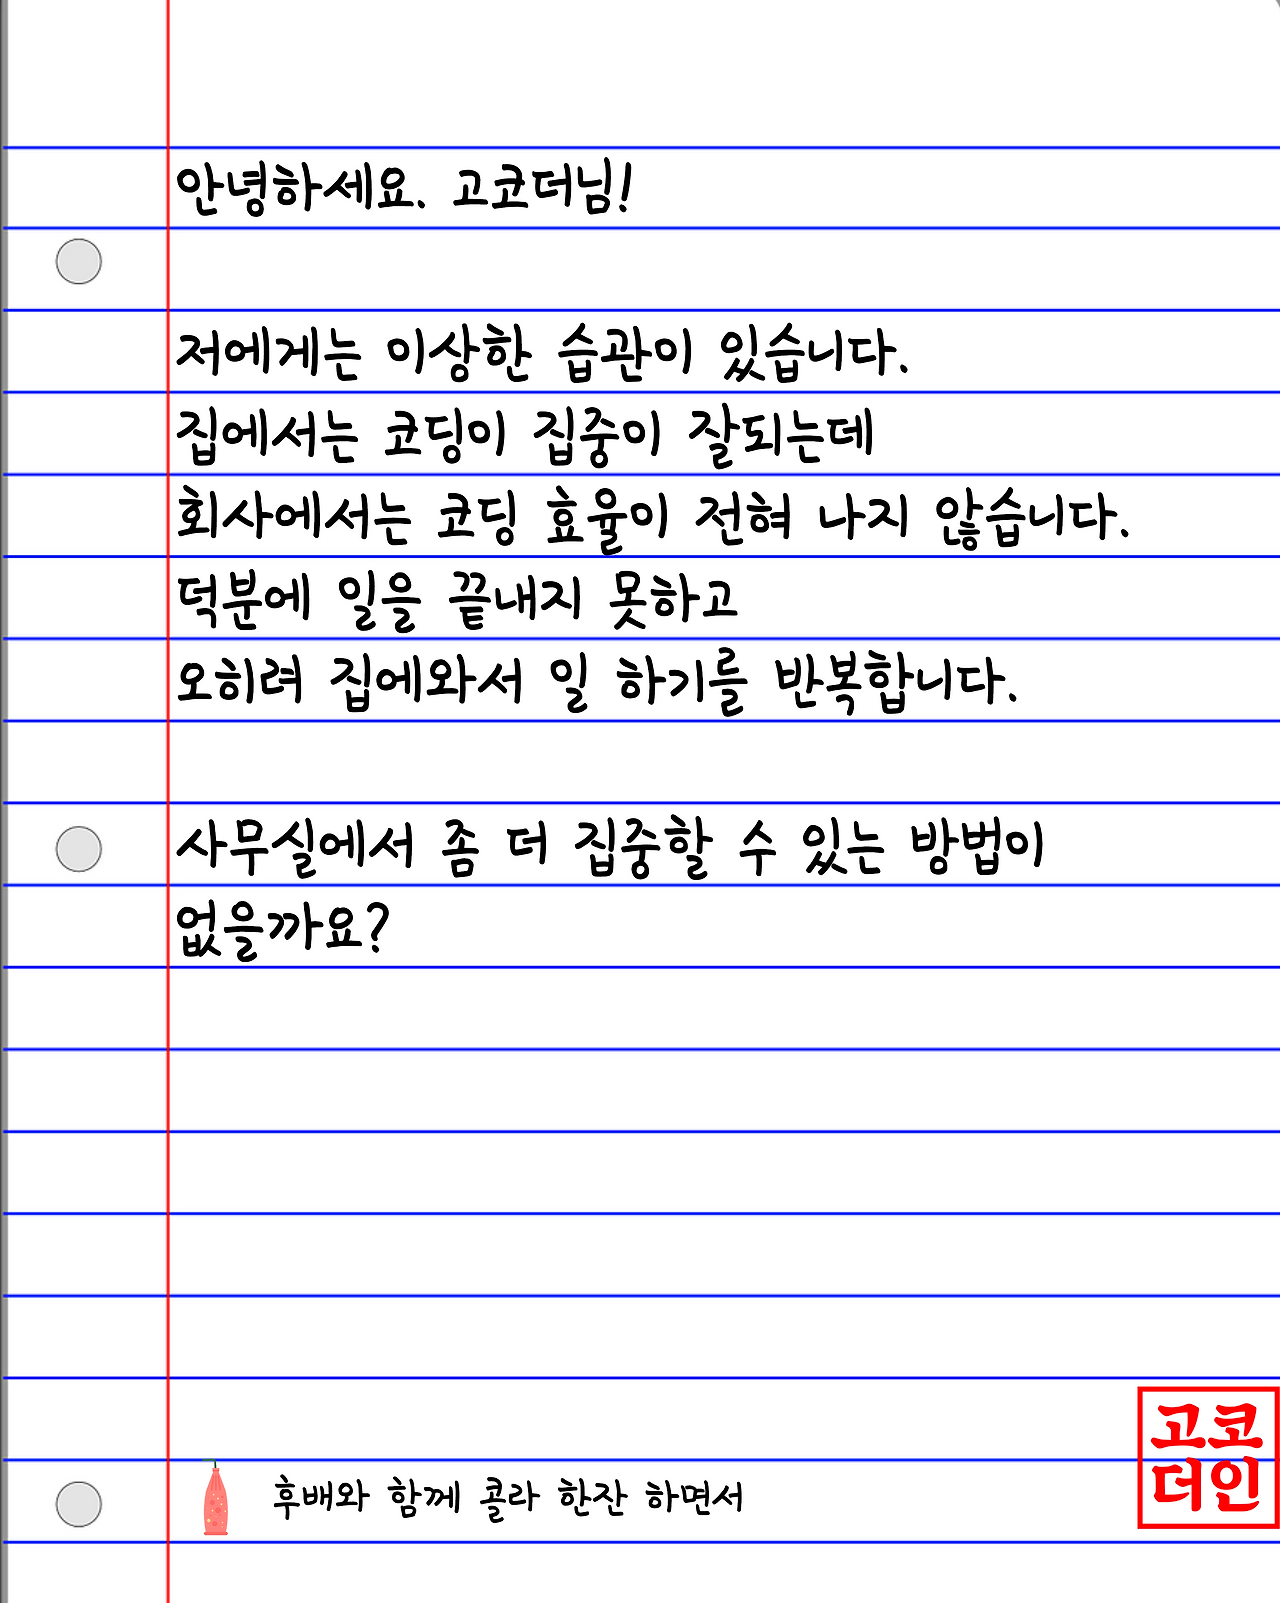 안녕하세요. 고코더님!
저에게는 이상한 습관이 있습니다.
집에서는 코딩이 집중이 잘되는데
회사에서는 코딩 효율이 전혀 나지 않습니다.
덕분에 일을 끝내지 못하고
오히려 집에와서 일 하기를 반복합니다.
사무실에서 좀 더 집중할 수 있는 방법이
없을까요?
후배와 함께 콜라 한잔 하면서
고코
더인